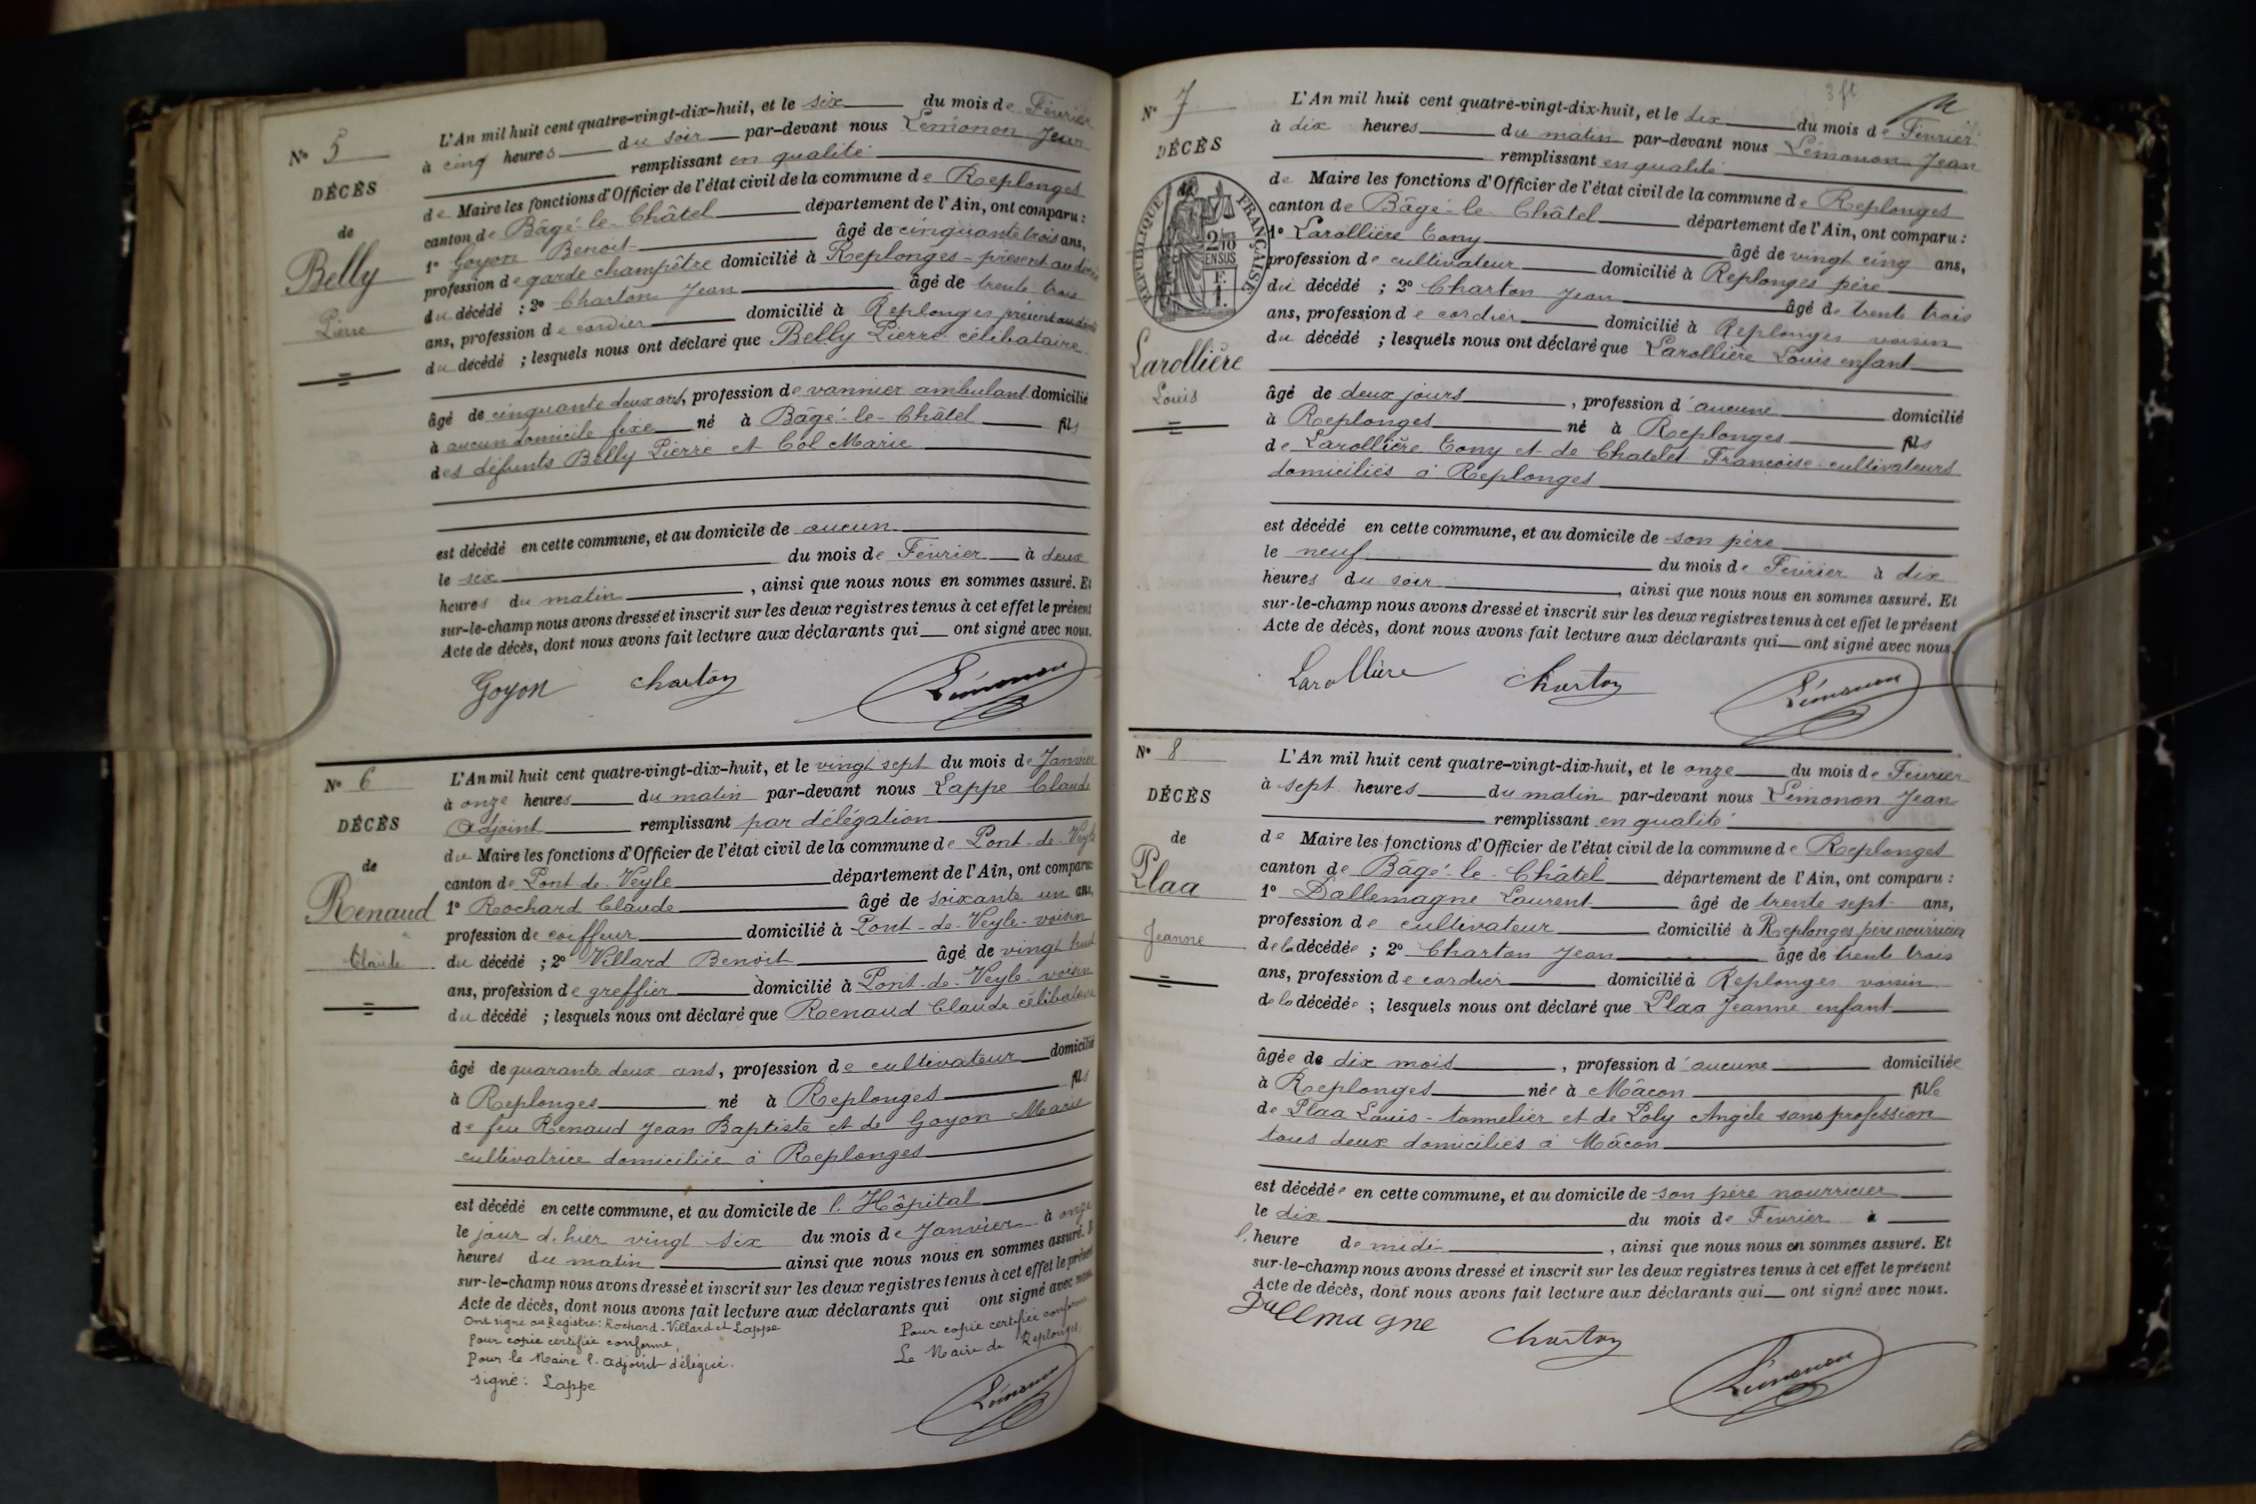 N° 5
DÉCÈS
de
Belly
Pierre
L'An mil huit cent quatre-vingt-dix-huit, et le six du mois de Février
à cinq heures du soir par-devant nous Lémonon Jean
remplissant en qualité
de Maire les fonctions d'Officier de l'état civil de la commune de Replonges
canton de Bâgé-le-Châtel département de l'Ain, ont comparu :
1° Goyon Benoit âgé de cinquante trois ans,
profession de garde champêtre domicilié à Replonges - présent au décès
du décédé ; 2° Charton Jean âgé de trente trois
ans, profession de cordier domicilié à Replonges présent au décès
du décédé ; lesquels nous ont déclaré que Belly Pierre célibataire
âgé de cinquante deux ans, profession de vannier ambulant domicilié
à aucun domicile fixe né à Bâgé-le-Châtel fils
des défunts Belly Pierre et Col Marie
est décédé en cette commune, et au domicile de aucun
le six du mois de Février à deux
heures du matin, ainsi que nous nous en sommes assuré. Et
sur-le-champ nous avons dressé et inscrit sur les deux registres tenus à cet effet le présent
Acte de décès, dont nous avons fait lecture aux déclarants qui ont signé avec nous.
Goyon Charton Lémonon
N° 6
DÉCÈS
de
Renaud
Claude
L'An mil huit cent quatre-vingt-dix-huit, et le vingt sept du mois de Janvier
à onze heures du matin par-devant nous Lappe Claude
Adjoint remplissant par délégation
du Maire les fonctions d'Officier de l'état civil de la commune de Pont-de-Veyle
canton de Pont-de-Veyle département de l'Ain, ont comparu:
1° Rochard Claude âgé de soixante un ans,
profession de coiffeur domicilié à Pont-de-Veyle-voisin
du décédé ; 2° Villard Benoit âgé de vingt huit
ans, profession de greffier domicilié à Pont-de-Veyle-voisin
du décédé ; lesquels nous ont déclaré que Renaud Claude célibataire
âgé de quarante deux ans, profession de cultivateur domicilié
à Replonges né à Replonges fils
de feu Renaud Jean Baptiste et de Goyon Marie
cultivatrice domiciliée à Replonges
est décédé en cette commune, et au domicile de l'Hôpital
le jour d'hier vingt six du mois de Janvier à onze
heures du matin ainsi que nous nous en sommes assuré. Et
sur-le-champ nous avons dressé et inscrit sur les deux registres tenus à cet effet le présent
Acte de décès, dont nous avons fait lecture aux déclarants qui ont signé avec nous.
Ont signé au Registre: Rochard-Villard et Lappe
Pour copie certifiée conforme,
Pour le Maire l'adjoint délégué.
signé: Lappe
Pour copie certifiée conforme
Le Maire de Replonges
Lémonon
3 ft
N° 7
DÉCÈS
RÉPUBLIQUE FRANÇAISE
2/10
EN SUS
F.
1.
Larollière
Louis
L'An mil huit cent quatre-vingt-dix-huit, et le dix du mois de Février
à dix heures du matin par-devant nous Lémonon Jean
remplissant en qualité
de Maire les fonctions d'Officier de l'état civil de la commune de Replonges
canton de Bâgé-le-Châtel département de l'Ain, ont comparu :
1° Larollière Tony âgé de vingt cinq ans,
profession de cultivateur domicilié à Replonges père
du décédé ; 2° Charton Jean âgé de trente trois
ans, profession de cordier domicilié à Replonges voisin
du décédé ; lesquels nous ont déclaré que Larollière Louis enfant
âgé de deux jours, profession d'aucune domicilié
à Replonges né à Replonges fils
de Larollière Tony et de Chatelet Françoise cultivateurs
domiciliés à Replonges
est décédé en cette commune, et au domicile de son père
le neuf du mois de Février à dix
heures du soir, ainsi que nous nous en sommes assuré. Et
sur-le-champ nous avons dressé et inscrit sur les deux registres tenus à cet effet le présent
Acte de décès, dont nous avons fait lecture aux déclarants qui ont signé avec nous.
Larollière Charton Lémonon
N° 8
DÉCÈS
de
Plaa
Jeanne
L'An mil huit cent quatre-vingt-dix-huit, et le onze du mois de Février
à sept heures du matin par-devant nous Lémonon Jean
remplissant en qualité
de Maire les fonctions d'Officier de l'état civil de la commune de Replonges
canton de Bâgé-le-Châtel département de l'Ain, ont comparu :
1° Dallemagne Laurent âgé de trente sept ans,
profession de cultivateur domicilié à Replonges père nourricier
de la décédée ; 2° Charton Jean âgé de trente trois
ans, profession de cordier domicilié à Replonges voisin
de la décédée ; lesquels nous ont déclaré que Plaa Jeanne enfant
âgée de dix mois, profession d'aucune domiciliée
à Replonges née à Mâcon fille
de Plaa Louis - tonnelier et de Poly Angèle sans profession
tous deux domiciliés à Mâcon
est décédée en cette commune, et au domicile de son père nourricier
le dix du mois de Février à
l'heure de midi, ainsi que nous nous en sommes assuré. Et
sur-le-champ nous avons dressé et inscrit sur les deux registres tenus à cet effet le présent
Acte de décès, dont nous avons fait lecture aux déclarants qui ont signé avec nous.
Dallemagne Charton Lémonon